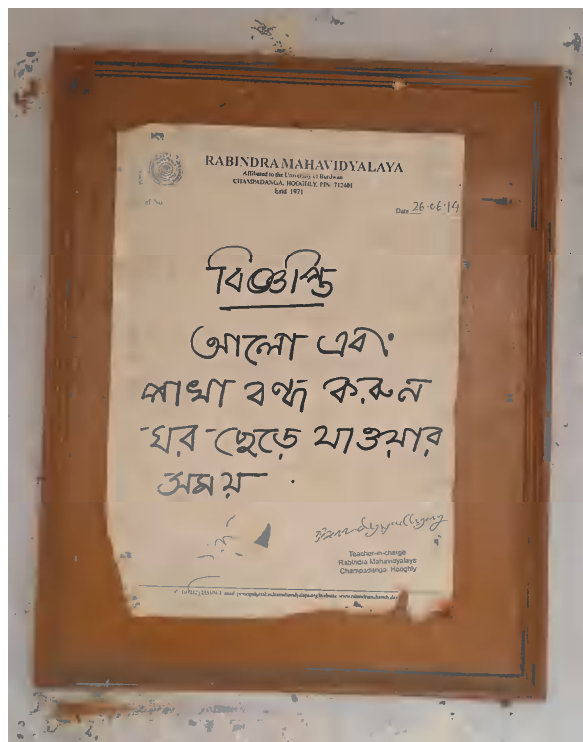 RABINDRA MAHAVIDYALAYA
Affiliated to the University of Burdwan
CHAMPADANGA, HOOGHLY, PIN 712401
Estd 1971
Date 26.06.19
বিজ্ঞপ্তি
আলো এবং
পাখা বন্ধ করুন
ঘর ছেড়ে যাওয়ার
সময়
Teacher-in-charge
Rabindra Mahavidyalaya
Champadanga Hooghly